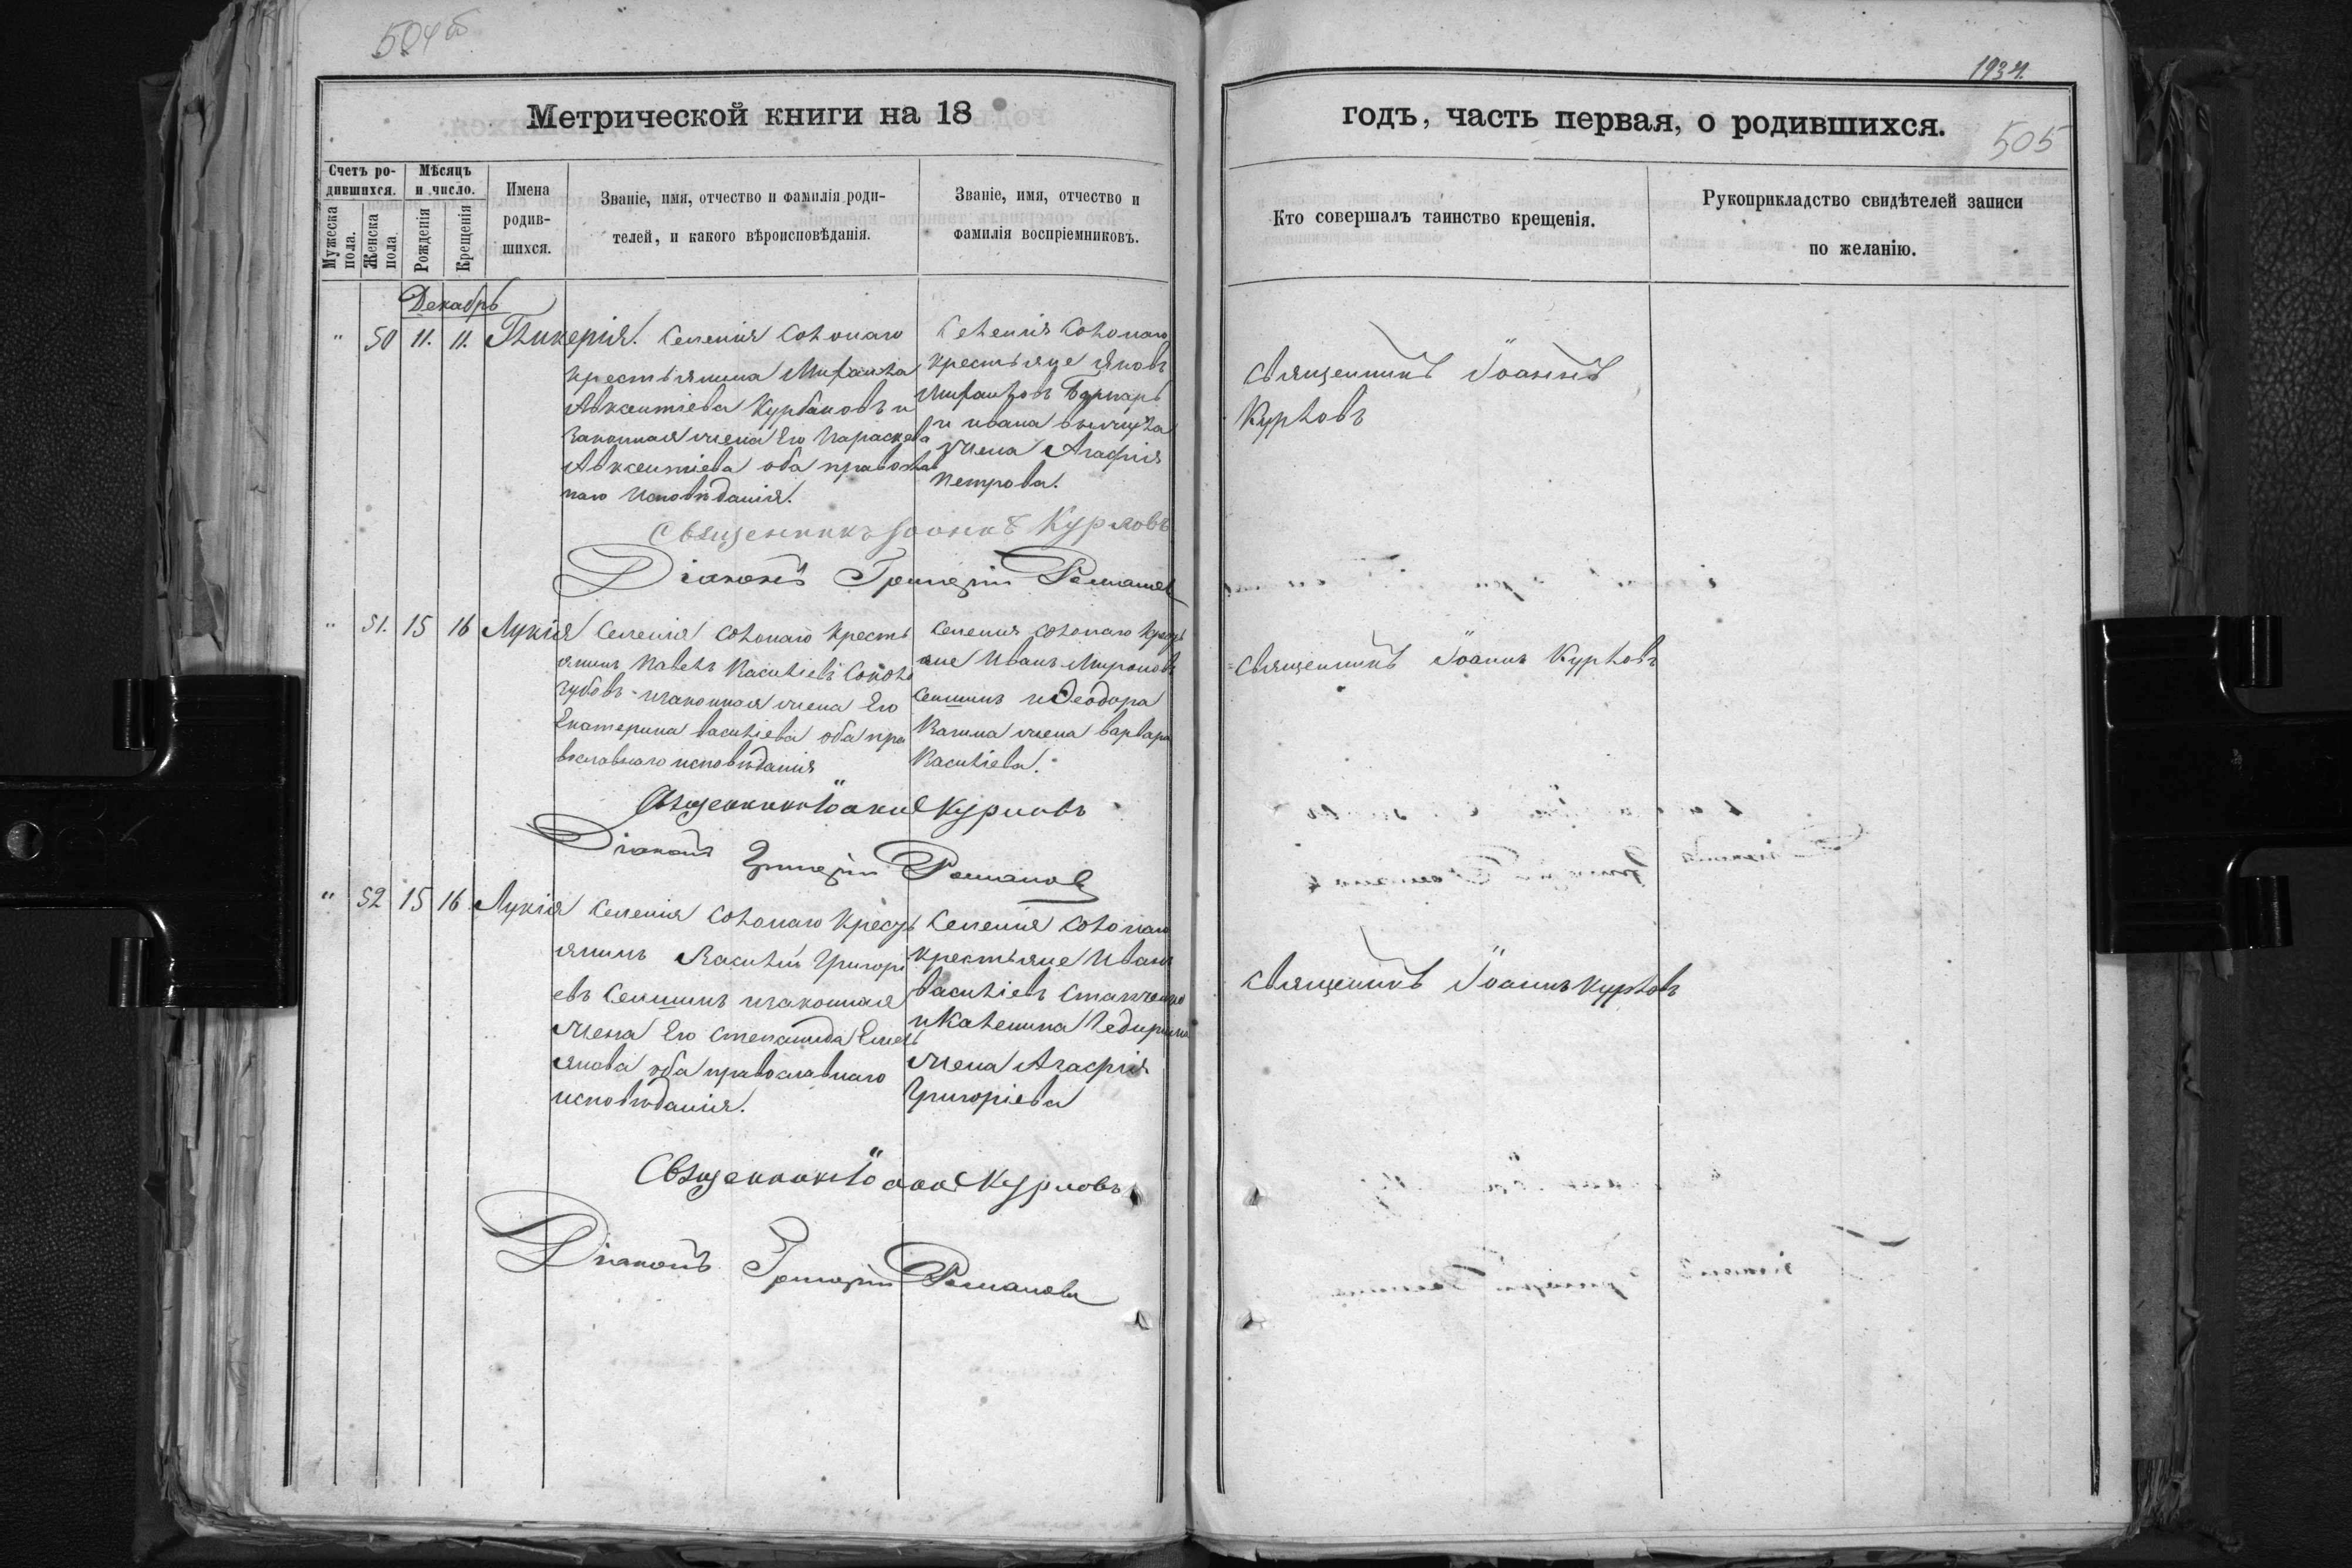 504 об
1934.
505
Метрической книги на 18
годъ, часть первая, о родившихся.
Счетъ родившихся.
Мужеска пола.
Женска пола
Мѣсяцъ и число.
Рожденія
Крещенія
Имена родив-
шихся.
Званіе, имя, отчество и фамилія роди-
телей, и какого вѣроисповѣданія.
Званіе, имя, отчество и
фамилія воспріемниковъ.
Кто совершалъ таинство крещенія.
Рукоприкладство свидѣтелей записи
по желанію.
Декабрь
" 50 11. 11. Гликерія.
Селенія Солонаго
крестьянина
Авксентіева Курбановъ и
законная жена Его Параскева
Авксентіева оба православ
наго Исповѣданія.
Селенія Солонаго
крестьяне Яковъ
и Ивана
жена Агафія
Петрова.
Священникъ Іоаннъ
Курловъ
Священникъ Іоаннъ Курловъ
Діаконъ Григорій Романовъ
" 51. 15 16 Лукія
Селенія Солонаго Кресть
янинъ Павелъ Василіевъ Соколо
губовъ изаконная жена Его
Екатерина Василіева оба пра
вославнаго исповѣданія
Селенія Солонаго Кресть
яне Иванъ Мироновъ
Сеншинъ и Ѳеодора
жена Варвара
Василіева.
Священникъ Іоаннъ Курловъ
Священникъ Іоаннъ Курловъ
Діаконъ Григорій Романовъ
" 52 15 16 Лукія
Селенія Солонаго Кресть
янинъ Василій Григорі
евъ Сеншинъ изаконная
жена Его Степанида Емель
янова оба православнаго
исповѣданія.
Селенія Солонаго
крестьяне Иванъ
Василіевъ
жена Агафія
Григоріева
Священникъ Іоаннъ Курловъ
Священникъ Іоаннъ Курловъ
Діаконъ Григорій Романовъ